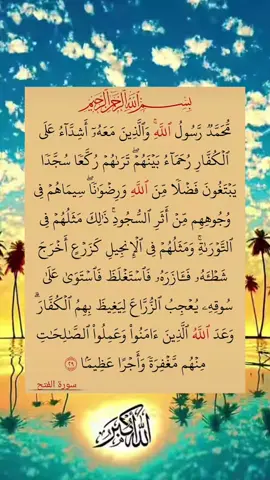 بِسْمِ ٱللَّهِ ٱلرَّحْمَٰنِ ٱلرَّحِيمِ
مُّحَمَّدٌ رَّسُولُ ٱللَّهِۚ وَٱلَّذِينَ مَعَهُۥٓ أَشِدَّآءُ عَلَى
ٱلْكُفَّارِ رُحَمَآءُ بَيْنَهُمْۖ تَرَىٰهُمْ رُكَّعًا سُجَّدًا
يَبْتَغُونَ فَضْلًا مِّنَ ٱللَّهِ وَرِضْوَٰنًاۖ سِيمَاهُمْ فِى
وُجُوهِهِم مِّنْ أَثَرِ ٱلسُّجُودِۚ ذَٰلِكَ مَثَلُهُمْ فِى
ٱلتَّوْرَىٰةِۚ وَمَثَلُهُمْ فِى ٱلْإِنجِيلِ كَزَرْعٍ أَخْرَجَ
شَطْـَٔهُۥ فَـَٔازَرَهُۥ فَٱسْتَغْلَظَ فَٱسْتَوَىٰ عَلَىٰ
سُوقِهِۦ يُعْجِبُ ٱلزُّرَّاعَ لِيَغِيظَ بِهِمُ ٱلْكُفَّارَۗ
وَعَدَ ٱللَّهُ ٱلَّذِينَ ءَامَنُوا۟ وَعَمِلُوا۟ ٱلصَّٰلِحَٰتِ
مِنْهُم مَّغْفِرَةً وَأَجْرًا عَظِيمًۢا ٢٩
سورة الفتح
الله أكبر